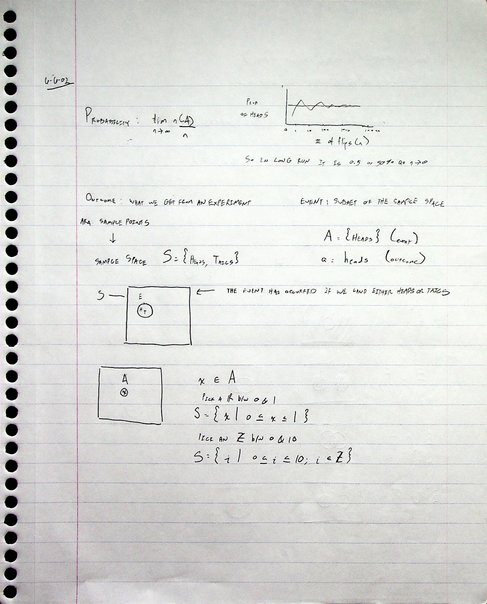 6-6-02
PROBABILITY: lim n(A)
n→∞ n
# of flips (n)
SO IN LONG RUN IT IS 0.5 or 50% as n→∞
OUTCOME: WHAT WE GET FROM AN EXPERIMENT
EVENT: SUBSET OF THE SAMPLE SPACE
AKA SAMPLE POINTS
A = {HEADS} (event)
↓
SAMPLE SPACE S = {HEADS, TAILS}
a = heads (outcome)
S
E
← THE EVENT HAS OCCURRED IF WE LAND EITHER HEADS OR TAILS
A
x
x ∈ A
PICK A R b/w 0 & 1
S = {x | 0 ≤ x ≤ 1}
PICK AN Z b/w 0 & 10
S = {i | 0 ≤ i ≤ 10, i ∈ Z}